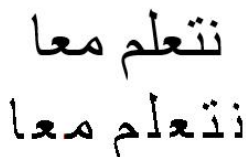 نتعلم معا
ن ت ع ل م م ع ا